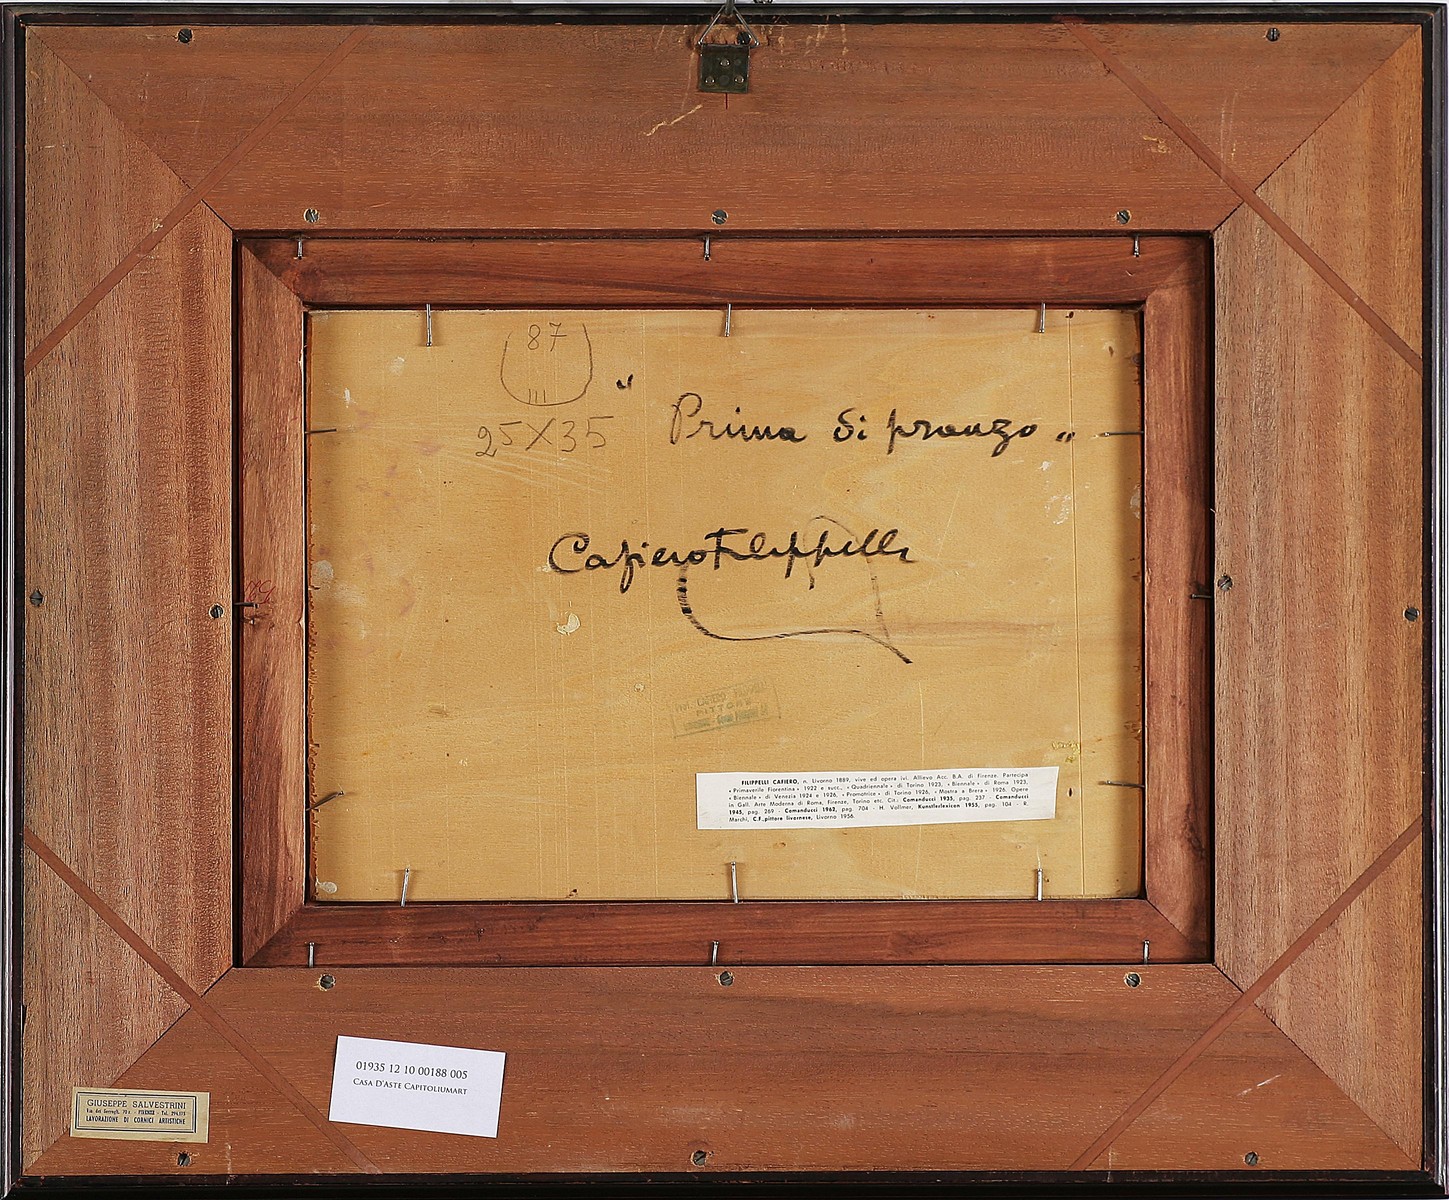 87
25X35
" Prima di pranzo "
Cafiero Filippelli
PITTORE
FILIPPELLI CAFIERO, n. Livorno 1889, vive ed opera ivi. Allievo Acc. B.A. di Firenze. Partecipa
« Primaverile Fiorentina » 1922 e succ., « Quadriennale » di Torino 1923, « Biennale » di Roma 1923,
« Biennale » di Venezia 1924 e 1926, « Promotrice » di Torino 1926, « Mostra a Brera » 1926. Opere
in Gall. Arte Moderna di Roma, Firenze, Torino etc. Cit.: Comanducci 1935, pag. 237 - Comanducci
1945, pag. 269 - Comanducci 1962, pag. 704 - H. Vollmer, Kunstlerlexicon 1955, pag. 104 - R.
Marchi, C.F., pittore livornese, Livorno 1956.
01935 12 10 00188 005
CASA D'ASTE CAPITOLIUMART
GIUSEPPE SALVESTRINI
Via dei Serragli, - FIRENZE - Tel.
LAVORAZIONE DI CORNICI ARTISTICHE